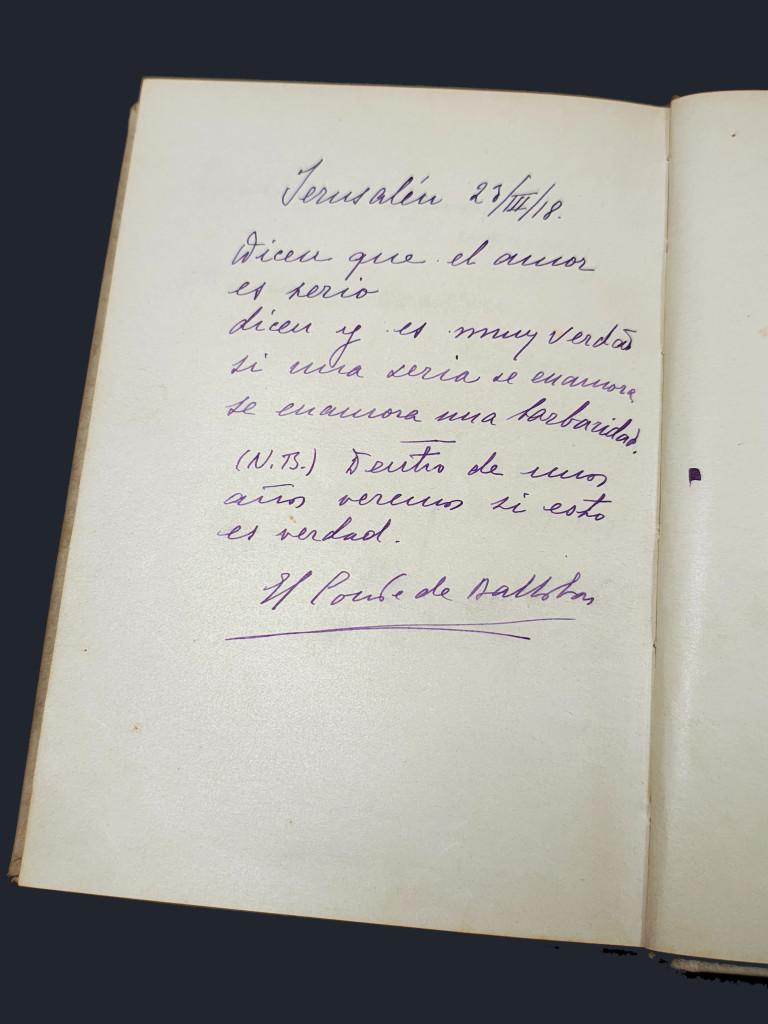 Jerusalén 23/III/18.
Dicen que el amor
es serio
dicen y es muy verdad
si una seria se enamora
se enamora una barbaridad.
(N.B.) Dentro de unos
años veremos si esto
es verdad.
El Conde de Ballobar